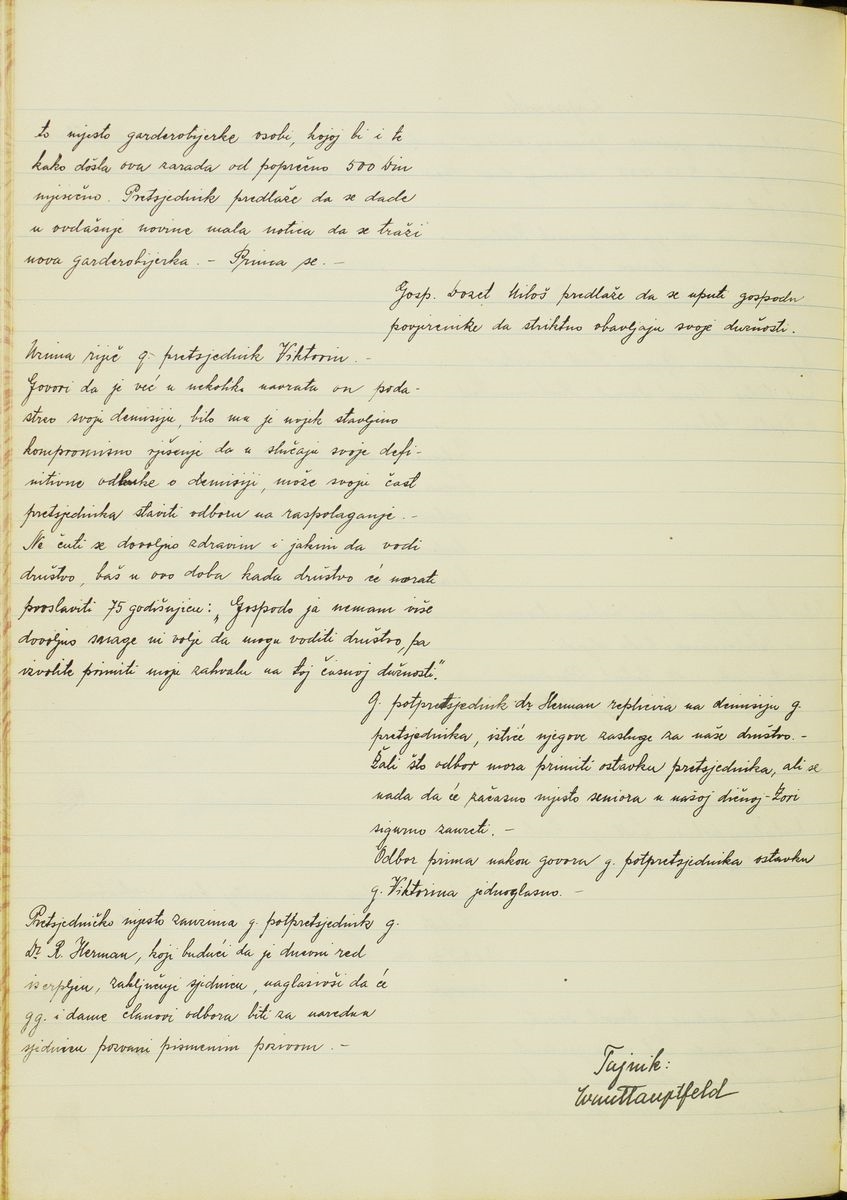 to mjesto garderobijerke osobi, kojoj bi i te
kako došla ova zarada od poprečno 500 Din
mjesečno. Pretsjednik predlaže da se dade
u ovdašnje novine mala notica da se traži
nova garderobijerka. - Prima se. -
Gosp. Dozet Miloš predlaže da se uputi gospodu
povjerenike da striktno obavljaju svoje dužnosti.
Uzima riječ g. pretsjednik Viktorin. -
Govori da je već u nekoliko navrata on poda-
streo svoju demisiju, bilo mu je uvjek stavljeno
kompromisno rješenje da u slučaju svoje defi-
nitivne odluke o demisiji, može svoju čast
pretsjednika staviti odboru na raspolaganje. -
Ne čuti se dovoljno zdravim i jakim da vodi
društvo, baš u ovo doba kada društvo će morati
proslaviti 75 godišnjicu: „Gospodo ja nemam više
dovoljno snage ni volje da mogu voditi društvo, pa
izvolite primiti moju zahvalu na toj časnoj dužnosti."
G. potpretsjednik dr. Herman replicira na demisiju g.
pretsjednika, ističe njegove zasluge za naše društvo. -
Žali što odbor mora primiti ostavku pretsjednika, ali se
nada da će začasno mjesto seniora u našoj dičnoj-Zori
sigurno zauzeti. -
Odbor prima nakon govora g. potpretsjednika ostavku
g. Viktorina jednoglasno. -
Pretsjedničko mjesto zauzima g. potpretsjednik g.
Dr. R. Herman, koji budući da je dnevni red
iscrpljen, zaključuje sjednicu, naglasivši da će
gg. i dame članovi odbora biti za narednu
sjednicu pozvani pismenim pozivom. -
Tajnik:
Hauptfeld